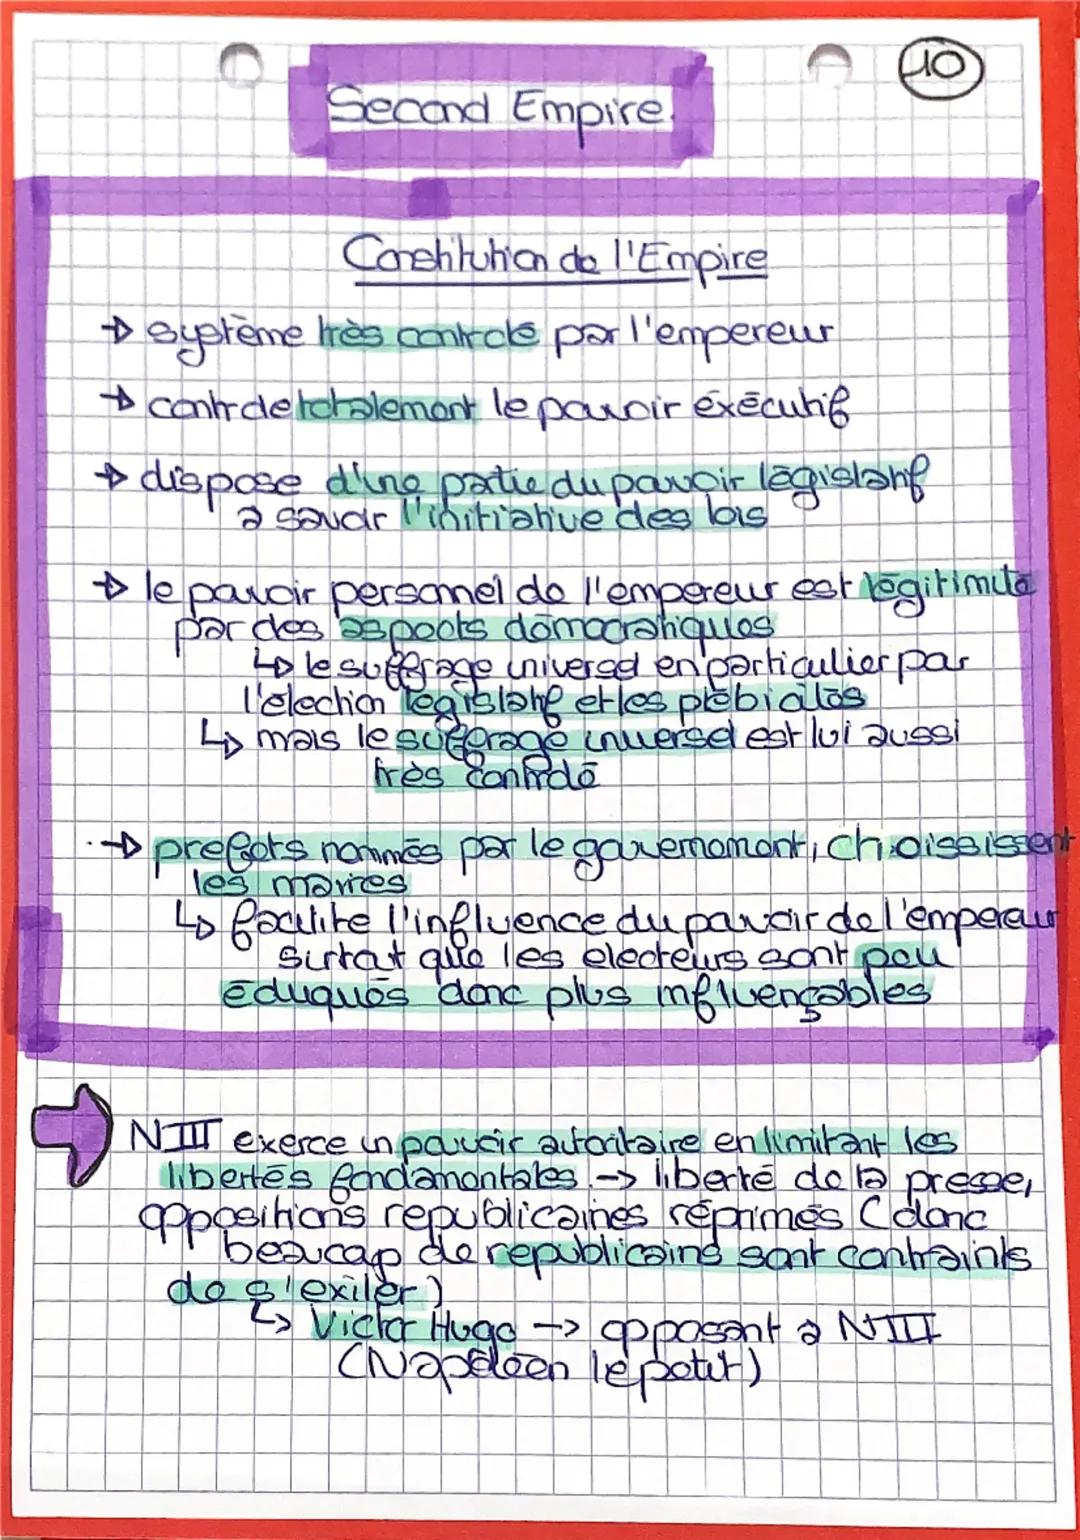 10
Second Empire.
Constitution de l'Empire
→ système très controlé par l'empereur
→ controle totalement le pouvoir éxécutif
→ dispose d'une partie du pouvoir législatif
a savoir l'initiative des lois
→ le pouvoir personnel de l'empereur est légitimité
par des aspects démocratiques
↳ le sufferage universel en particulier par
l'élection législatif et les plébicites
↳ mais le sufferage universel est lui aussi
très controlé
→ prefets nommés par le gouvernement, choississent
les maires
↳ facilite l'influence du pouvoir de l'empereur
surtout que les electeurs sont peu
éduqués donc plus influençables
NIII exerce un pouvoir autoritaire en limitant les
libertés fondamentales → liberté de la presse,
oppositions republicaines réprimés (donc
beaucoup de republicains sont contraints
de s'exiler)
↳ Victor Hugo → opposant a NIII
(Napoléon le petit)